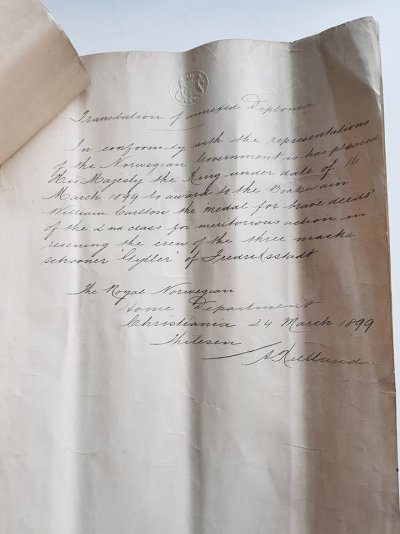 Translation of annexed Diploma
In conformity with the representations
of the Norwegian Government it has pleased
His Majesty the King under date of 16
March 1899 to award to the Boatswain
William Carlton the medal for brave deeds
of the 2nd class for meritorious action in
rescuing the crew of the three maska
schooner "Gyller" of Fredriksstadt
The Royal Norwegian
Home Department
Christiania 24 March 1899
Thilesen
A Kielland